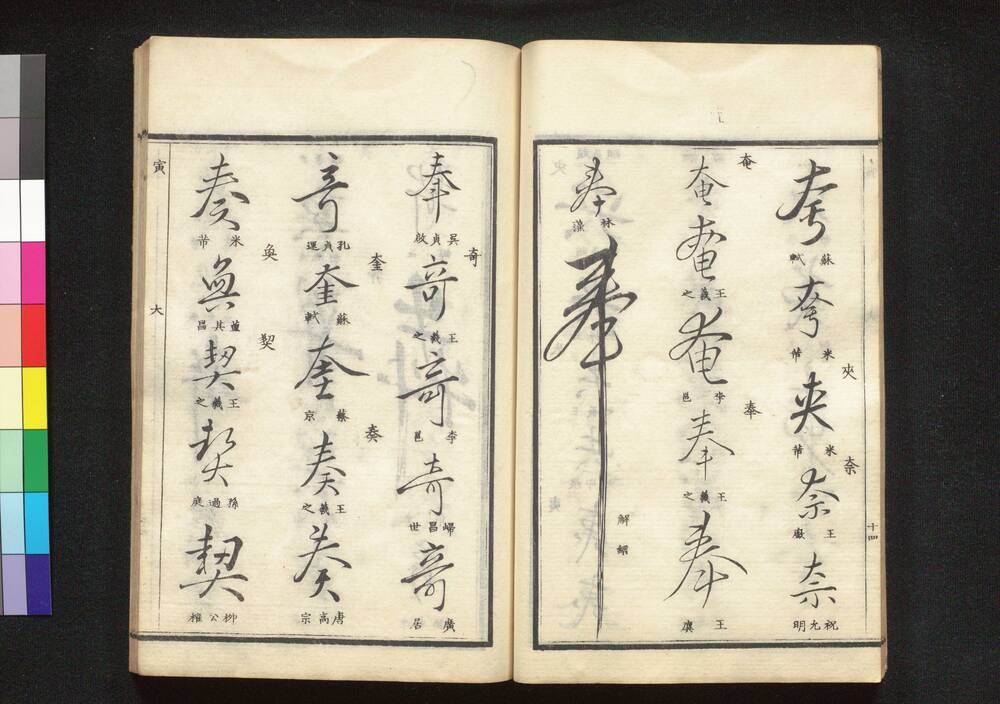 十四
夸 蘇軾 夸 米芾 夾 米芾 奈 王獻 奈 祝允明
夾 奈
奄 奄 王羲之 奄 李邕 奉 王羲之 奉 王廙
奄 奉
奉 林藻 奉 解縉
奉 吳貞啟 奇 王羲之 奇 李邕 奇 歸昌世 奇 廣居
奇
奇 孔貞運 奎 蘇軾 奎 蔡京 奏 王羲之 奏 唐高宗
奎 奏
奏 米芾 奐 董其昌 契 王羲之 契 孫過庭 契 柳公權
奐 契
寅 大